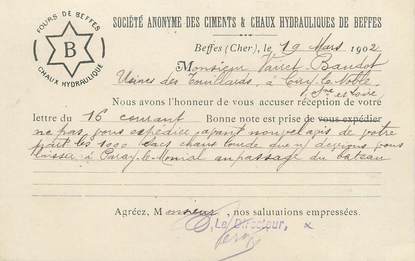 FOURS DE BEFFES
B
CHAUX HYDRAULIQUE
SOCIÉTÉ ANONYME DES CIMENTS & CHAUX HYDRAULIQUES DE BEFFES
Beffes (Cher), le 19 Mars 1902
Monsieur Baudot
Usines des à
Sne et Loire
Nous avons l'honneur de vous accuser réception de votre
lettre du 16 courant Bonne note est prise de vous expédier
ne pas vous expédier avant nouvel avis de votre
part les 1000 sacs chaux lourde que n/ devions vous
laisser à Paray-le-Monial au passage du bateau
Agréez, Monsieur, nos salutations empressées.
Le Directeur,